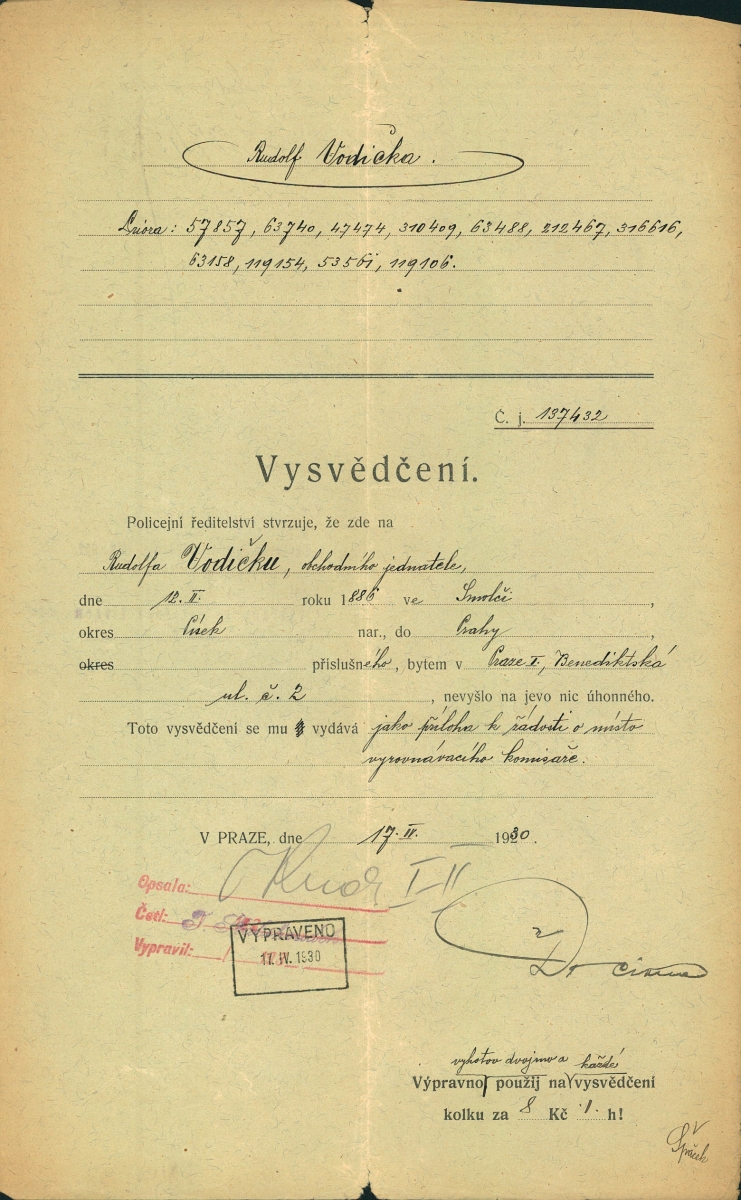 Rudolf Vodička.
Priora: 57857, 63740, 47474, 310409, 63488, 212467, 316616,
63158, 119154, 53561, 119106.
Č. j. 137432
Vysvědčení.
Policejní ředitelství stvrzuje, že zde na
Rudolfa Vodičku, obchodního jednatele,
dne 12. II. roku 1886 ve Smolči,
okres Písek nar., do Prahy,
okres příslušného, bytem v Praze I., Benediktská
ul. č. 2, nevyšlo na jevo nic úhonného.
Toto vysvědčení se mu vydává jako příloha k žádosti o místo
vyrovnávacího komisaře.
V PRAZE, dne 17. IV. 1930.
Opsala:
Četl:
Vypravil:
VYPRAVENO
17. IV. 1930
vyhotov dvojmo a každé
Výpravno použij na vysvědčení
kolku za 8 Kč h!